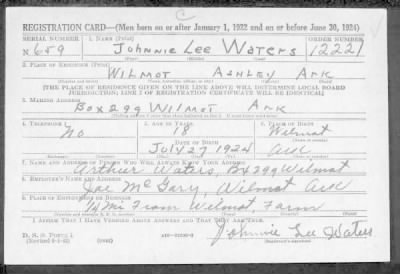 C
REGISTRATION CARD—(Men born on or after January 1, 1922 and on or before June 30, 1924)
SERIAL NUMBER 1. NAME (Print) ORDER NUMBER
N 659 Johnnie Lee Waters 12221
2. PLACE OF RESIDENCE (Print)
WILMOT ASHLEY ARK
[THE PLACE OF RESIDENCE GIVEN ON THE LINE ABOVE WILL DETERMINE LOCAL BOARD
JURISDICTION; LINE 2 OF REGISTRATION CERTIFICATE WILL BE IDENTICAL]
3. MAILING ADDRESS
Box 299 WILMOT ARK
4. TELEPHONE 5. AGE IN YEARS 6. PLACE OF BIRTH
No 18 Wilmot
DATE OF BIRTH
JULY 27 1924 Ark
7. NAME AND ADDRESS OF PERSON WHO WILL ALWAYS KNOW YOUR ADDRESS
Arthur Waters, Bx 299 Wilmot
8. EMPLOYER'S NAME AND ADDRESS
Joe McGary, Wilmot Ark
9. PLACE OF EMPLOYMENT OR BUSINESS
Mi From Wilmot, Farm
I AFFIRM THAT I HAVE VERIFIED ABOVE ANSWERS AND THAT THEY ARE TRUE.
D. S. S. Form 1
Johnnie Lee Waters